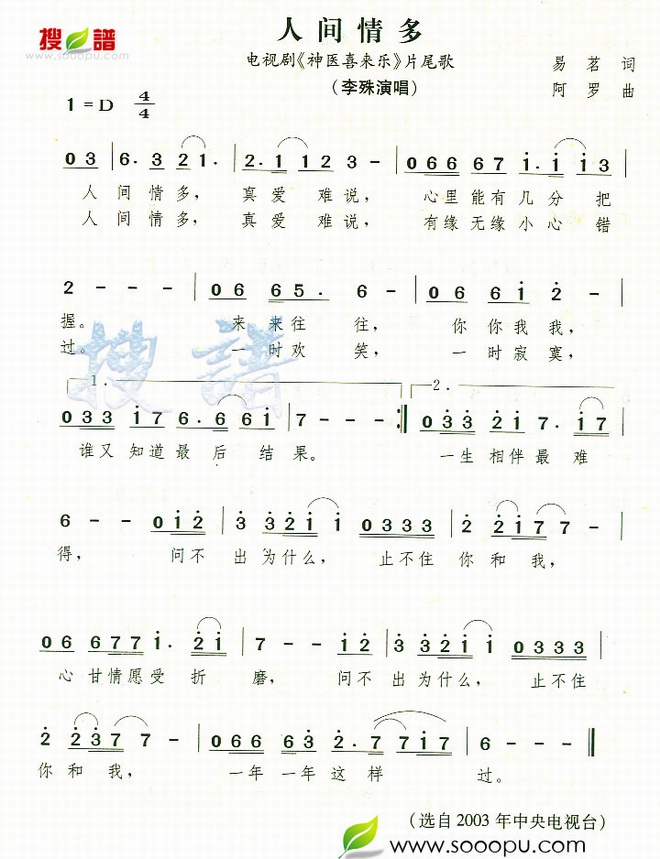 搜谱
www.sooopu.com
人间情多
电视剧《神医喜来乐》片尾歌
(李殊演唱)
易茗 词
阿罗 曲
1=D 4/4
0 3 | 6. 3 2 1. | 2. 1 1 2 3 - | 0 6 6 6 7 1. 1 1 3 |
人间情多， 真爱 难说， 心里能有几分 把
人间情多， 真爱 难说， 有缘无缘小心 错
2 - - - | 0 6 6 5. 6 - | 0 6 6 1 2 - |
握。 来来往 往， 你你我我，
过。 一时欢 笑， 一时寂寞，
搜谱
1. 2.
0 3 3 1 7 6. 6 6 1 | 7 - - - :| 0 3 3 2 1 7. 1 7 |
谁又知道最后 结果。 一生相伴最 难
6 - - 0 1 2 | 3 3 2 1 1 0 3 3 3 | 2 2 1 7 7 - |
得， 问不 出为什么， 止不住 你和我，
0 6 6 7 7 1. 2 1 | 7 - - 1 2 | 3 3 2 1 1 0 3 3 3 |
心甘情愿受 折 磨， 问不 出为什么， 止不住
2 2 3 7 7 - | 0 6 6 6 3 2. 7 7 1 7 | 6 - - ‖
你和我， 一年一年这样 过。
(选自2003年中央电视台)
www.sooopu.com